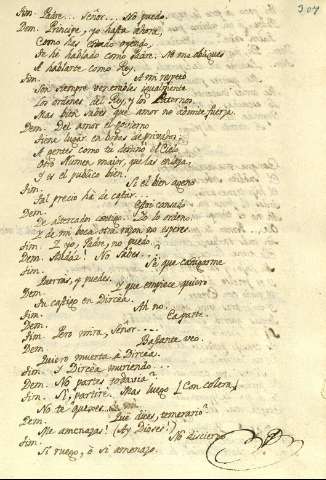 307
Tim. Padre... Señor... No puedo.
Dem. Principe, yo hasta ahora,
Como has estado oyendo,
Te hè hablado como Padre: No me obligues
A hablarte como Rey.
Tim. A mi respeto
Son siempre venerables igualmente
Los ordenes del Rey, y los Paternos.
Mas bien sabes que amor no admite fuerza.
Dem. Del amor el govierno
Tiene lugar en bodas de privados;
A gentes como tu destinò el Cielo
Otro Numen maior, que las enlaza,
Y es el publico bien.
Tim. Si el bien ageno
Tal precio hà de costar...
Dem. Estoi cansado
contigo... Yo lo ordeno
Y de mi boca otra razon no esperes.
Tim. Y yo, Padre, no puedo.
Dem. Audaz! No sabes...
Tim. Sè que castigarme
Querràs, y puedes.
Dem. Y que empieze quiero
Tu castigo en Dircèa.
Tim. Ah no.
Dem. Ea parte.
Tim. Pero mira, Señor...
Dem. Bastante veo.
Quiero muerta à Dircèa.
Tim. Y Dircèa muriendo...
Dem. No partes todavia?
Tim. Si, partirè. Mas luego [Con colera]
No te quexes
Dem. Què dices, temerario?
Me amenazas! (Ay Dioses!)
Tim. No discierno
Si ruego, ò si amenazo.